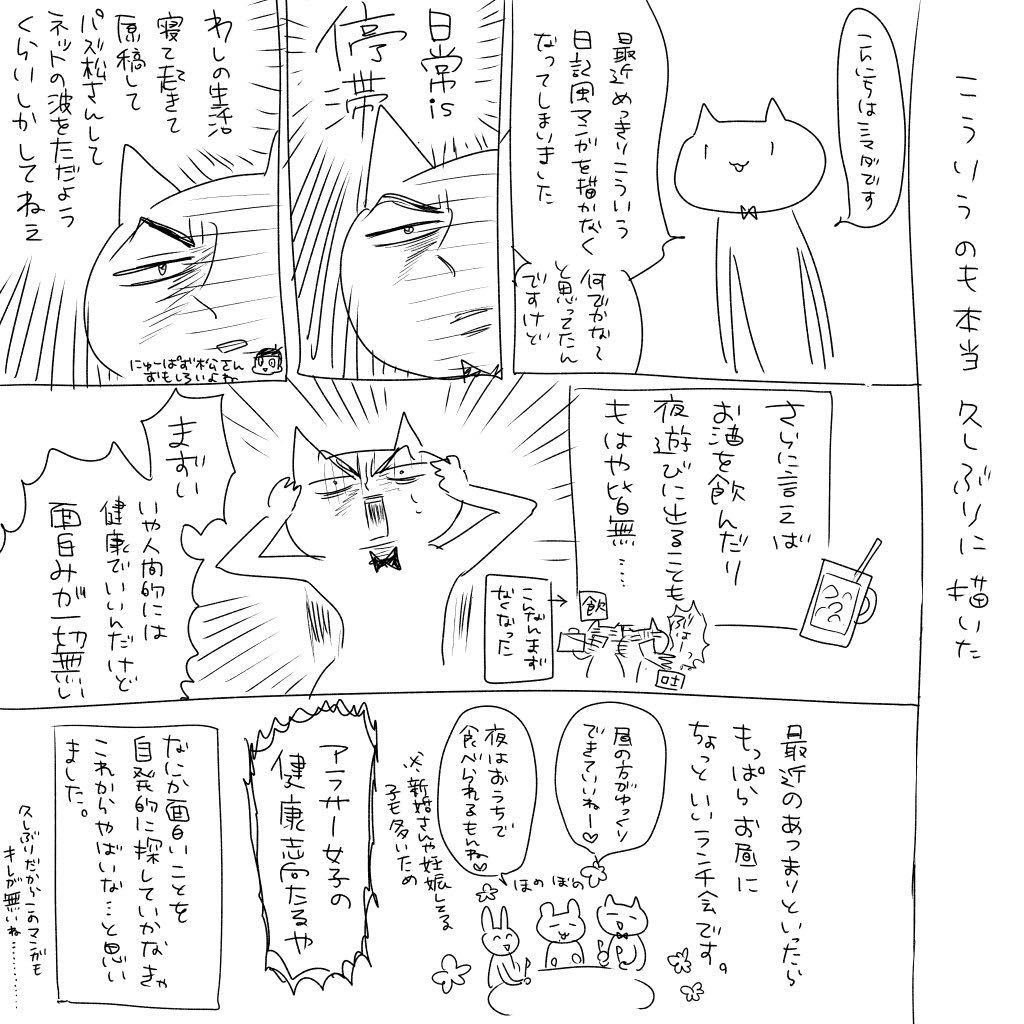 こういうのも本当久しぶりに描いた
こんにちはミマダです
最近めっきりこういう
日記風マンガを描かなく
なってしまいました
何でかな〜
と思ってたん
ですけど
日常is
停滞
わしの生活
寝て起きて
原稿して
パズ松さんして
ネットの波をただよう
くらいしかしてねえ
にゅーぱず松さん
おもしろいよね
さらに言えば
お酒を飲んだり
夜遊びに出ることも
もはや皆無…
飲
ぶはーっ
吐
こんなんまず
なくなった
まずい
いや人間的には
健康でいいんだけど
面白みが一切無い
最近のあつまりといったら
もっぱらお昼に
ちょっといいランチ会です。
昼の方がゆっくり
できていいねー♡
夜はおうちで
食べられるもんね♡
※新婚さんや妊娠してる
子も多いため
ほのぼの
アラサー女子の
健康志向たるや
なにか面白いことを
自発的に探していかなきゃ
これからやばいな…と思い
ました。
久しぶりだからこのマンガも
キレが無いね…………